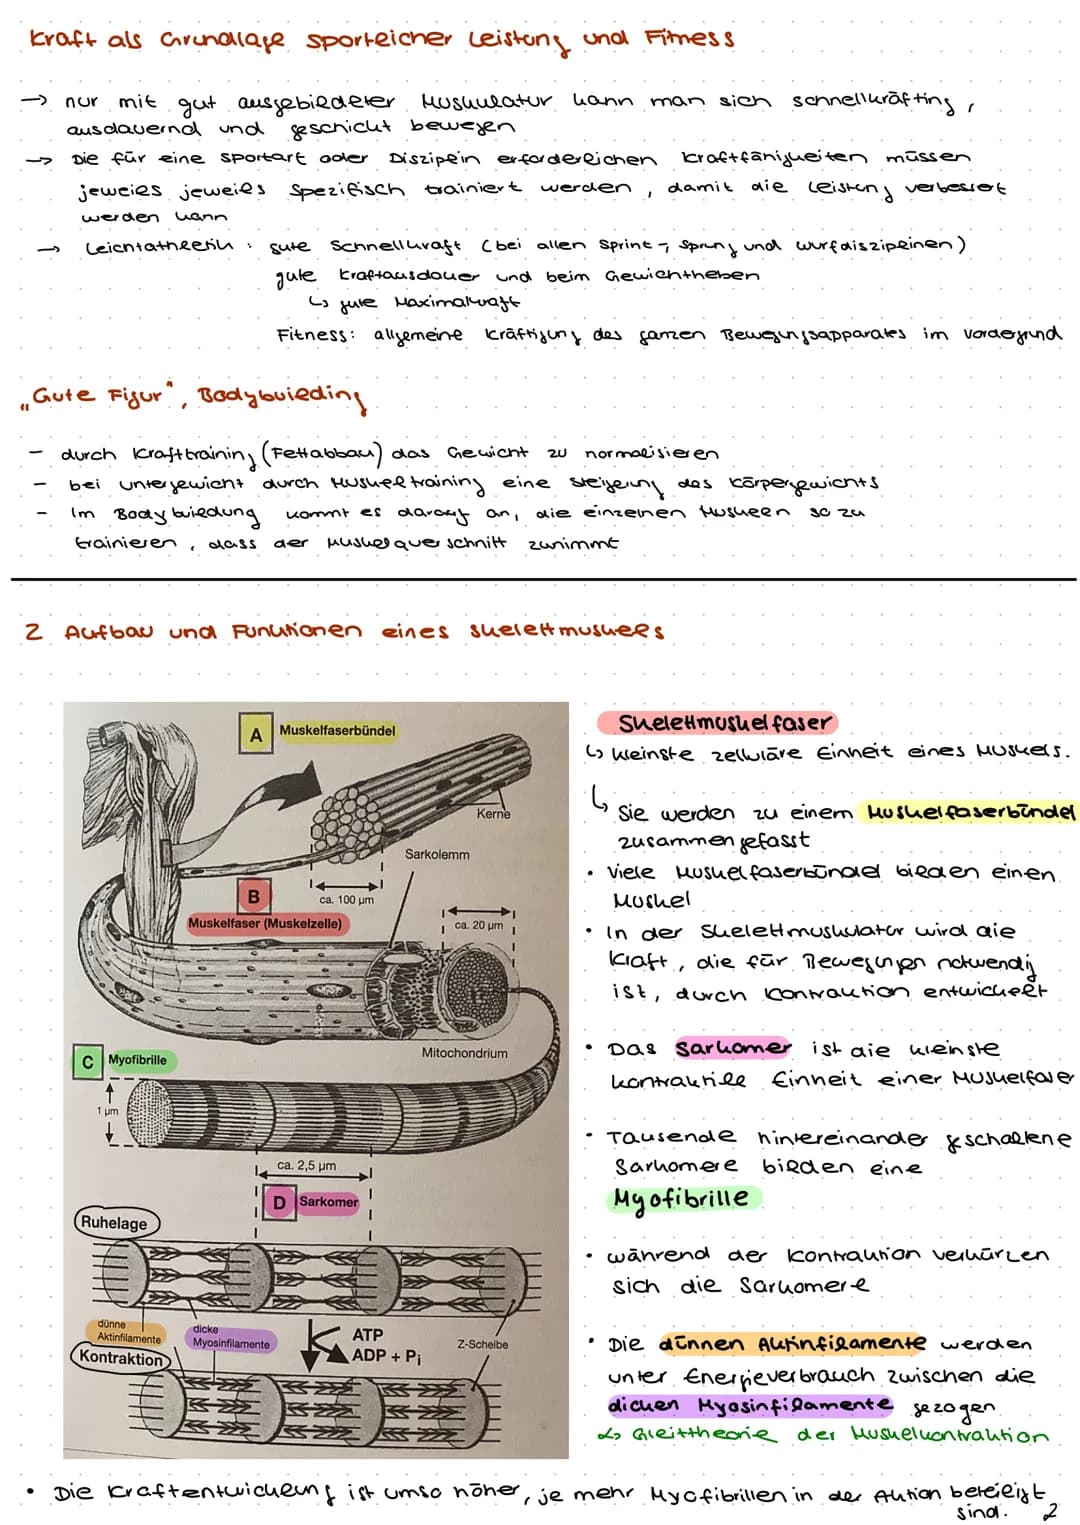 Kraft als Grundlage sportlicher Leistung und Fitness
→ nur mit gut ausgebildeter Muskulatur kann man sich schnellkräfting,
ausdauernd und geschickt bewegen
→ Die für eine Sportart oder Disziplin erforderlichen Kraftfähigkeiten müssen
jeweils jeweils spezifisch trainiert werden, damit die Leistung verbessert
werden kann
→ Leichtathletik: gute Schnellkraft (bei allen Sprint-, Sprung und Wurfdisziplinen)
gute Kraftausdauer und beim Gewichtheben
↳ gute Maximalkraft
Fitness: allgemeine Kräftigung des ganzen Bewegungsapparates im Vordergrund
„Gute Figur", Bodybuilding
- durch Krafttraining (Fettabbau) das Gewicht zu normalisieren
- bei Untergewicht durch Muskeltraining eine Steigerung des Körpergewichts
- Im Bodybuildung kommt es darauf an, die einzelnen Muskeln so zu
trainieren, dass der Muskelquerschnitt zunimmt
2 Aufbau und Funktionen eines Skelettmuskels
A Muskelfaserbündel
Kerne
Sarkolemm
ca. 100 µm
B
Muskelfaser (Muskelzelle)
ca. 20 µm
Mitochondrium
C Myofibrille
1 µm
ca. 2,5 µm
D Sarkomer
Ruhelage
dünne
Aktinfilamente
dicke
Myosinfilamente
ATP
ADP + Pi
Z-Scheibe
Kontraktion
Skelettmuskelfaser
↳ kleinste zelluläre Einheit eines Muskels.
↳ Sie werden zu einem Muskelfaserbündel
zusammengefasst
• Viele Muskelfaserbündel bilden einen
Muskel
• In der Skelettmuskulatur wird die
Kraft, die für Bewegungen notwendig
ist, durch Kontraktion entwickelt
• Das Sarkomer ist die kleinste
kontraktile Einheit einer Muskelfaser
• Tausende hintereinander geschaltene
Sarkomere bilden eine
Myofibrille
• während der Kontraktion verkürzen
sich die Sarkomere
• Die dünnen Aktinfilamente werden
unter Energieverbrauch zwischen die
dicken Myosinfilamente gezogen
↳ Gleittheorie der Muskelkontraktion
• Die Kraftentwicklung ist umso höher, je mehr Myofibrillen in der Aktion beteiligt
sind. 2